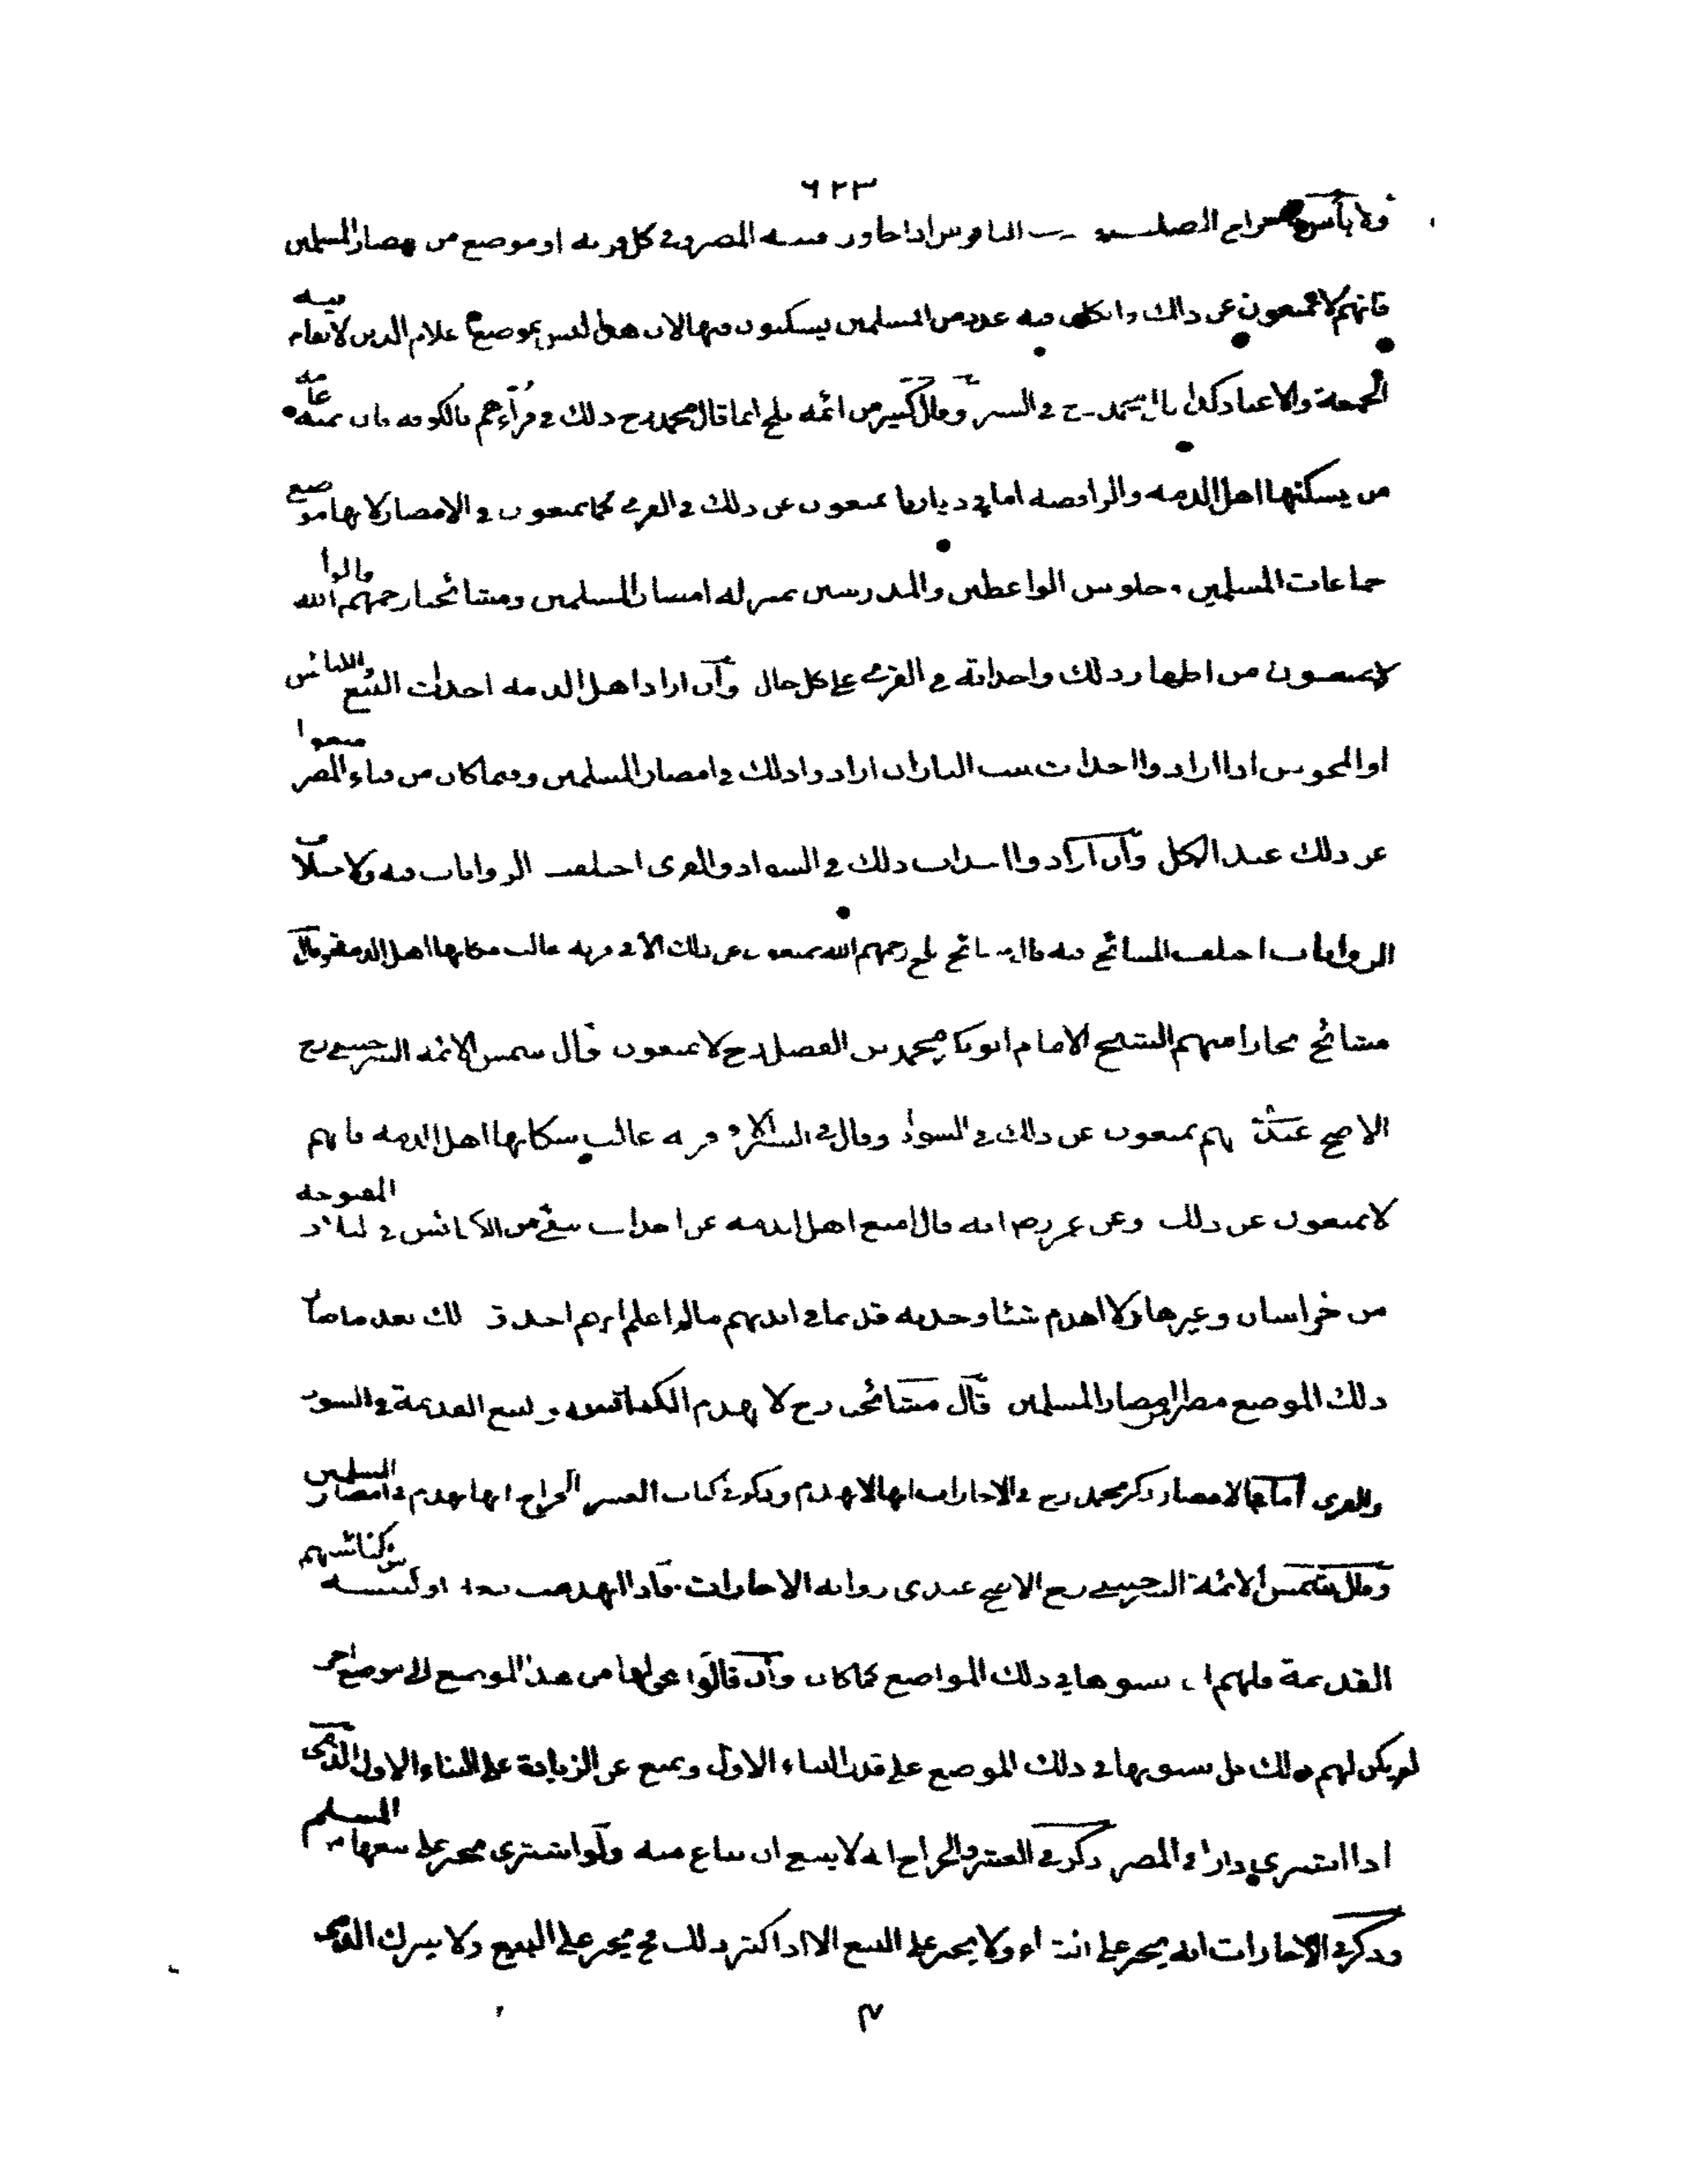 ٦٢٣
ولا بأس باخراج الصليب وضرب الناقوس اذا جاوز فنية المصر وفي كل قرية او موضع من امصار المسلمين
فانهم لا يمنعون عن ذالك وان كان فيه عدد من المسلمين يسكنون فيها لان هذا ليس بموضع اعلام الدين لا تقام فيه
الجمعة والاعياد كذا قال محمد رح في السير وقال كثير من ائمه بلخ انما قال محمد رح ذلك في قراءهم بالكوفه فان عامة
من يسكنها اهل الذمه والرافضه اما في ديارنا يمنعون عن ذلك في القرى كما يمنعون في الامصار لانها موضع
جماعات المسلمين وجلوس الواعظين والمدرسين بمنزله امصار المسلمين ومشائخنا رحمهم الله قالوا
لا يمنعون من اظهار ذلك واحداثه في القرى على كل حال وان اراد اهل الذمه احداث البيع والكنائس
او المجوس اذا ارادوا احداث بيت النار ان ارادوا ذلك في امصار المسلمين وفيما كان من فناء المصر منعوا
عن ذلك عند الكل وان ارادوا احداث ذلك في السواد والقرى اختلفت الروايات فيه ولاختلاف
الروايات اختلف المشائخ فيه قال مشائخ بلخ رحمهم الله يمنعون عن ذلك الا في قريه غالب سكانها اهل الذمه وقال
مشائخ بخارا منهم الشيخ الامام ابوبكر محمد بن الفضل رح لا يمنعون قال شمس الائمه السرخسي رح
الاصح عندي انهم يمنعون عن ذلك في السواد وقال في السير الا في قريه غالب سكانها اهل الذمه فانهم
لا يمنعون عن ذلك وعن عمر رض انه قال امنع اهل الذمه عن احداث شئ من الكنائس في البلاد المفتوحه
من خراسان وغيرها ولا اهدم شئا وجدته قديما في ايديهم مالم اعلم انهم احدثوا ذلك بعد ما صار
ذلك الموضع مصرا من امصار المسلمين قال مشائخنا رح لا يهدم الكنائس و البيع القديمة في السود
والقرى اما في الامصار ذكر محمد رح في الاجارات انها لا يهدم وذكر في كتاب العشر والخراج انها يهدم في امصار المسلمين
وقال شمس الائمة السرخسي رح الاصح عندي روايه الاجارات فاذا انهدمت بيعة او كنيسه من كنائسهم
القديمة فلهم ان يبنوها في ذلك المواضع كما كان وان قالوا نحولها من هذا الموضع الى موضع اخر
لم يكن لهم ذلك بل يبنونها في ذلك الموضع على قدر البناء الاول ويمنع عن الزيادة على البناء الاول الذمى
اذا اشترى دارا في المصر ذكر في العشر والخراج انه لا يسع ان يباع منه ولو اشترى يجبر على بيعها من المسلم
وذكر في الاجارات انه يجبر على الشراء ولا يجبر على البيع الا اذا كثر ذلك فح يجبر على البيع ولا يترك الذمى